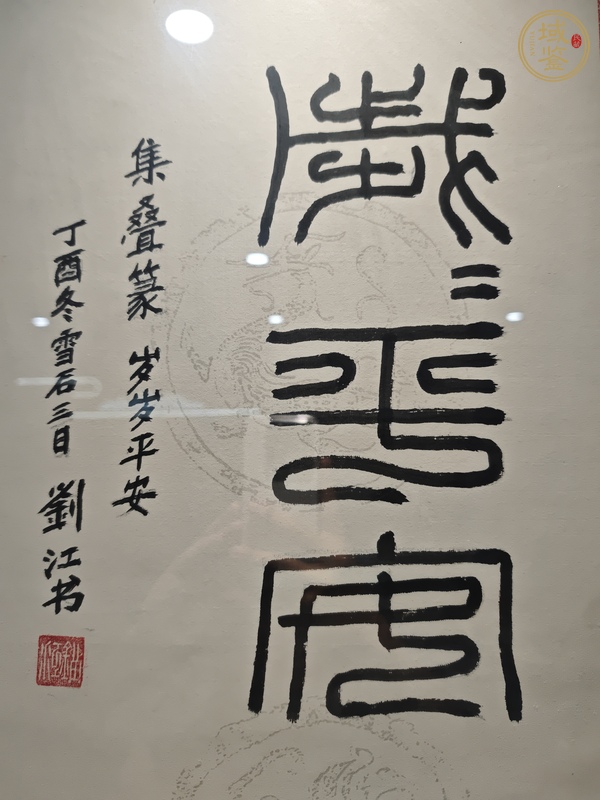 歲〻平安
集叠篆 岁岁平安
丁酉冬雪后三日 劉江书
域鉴